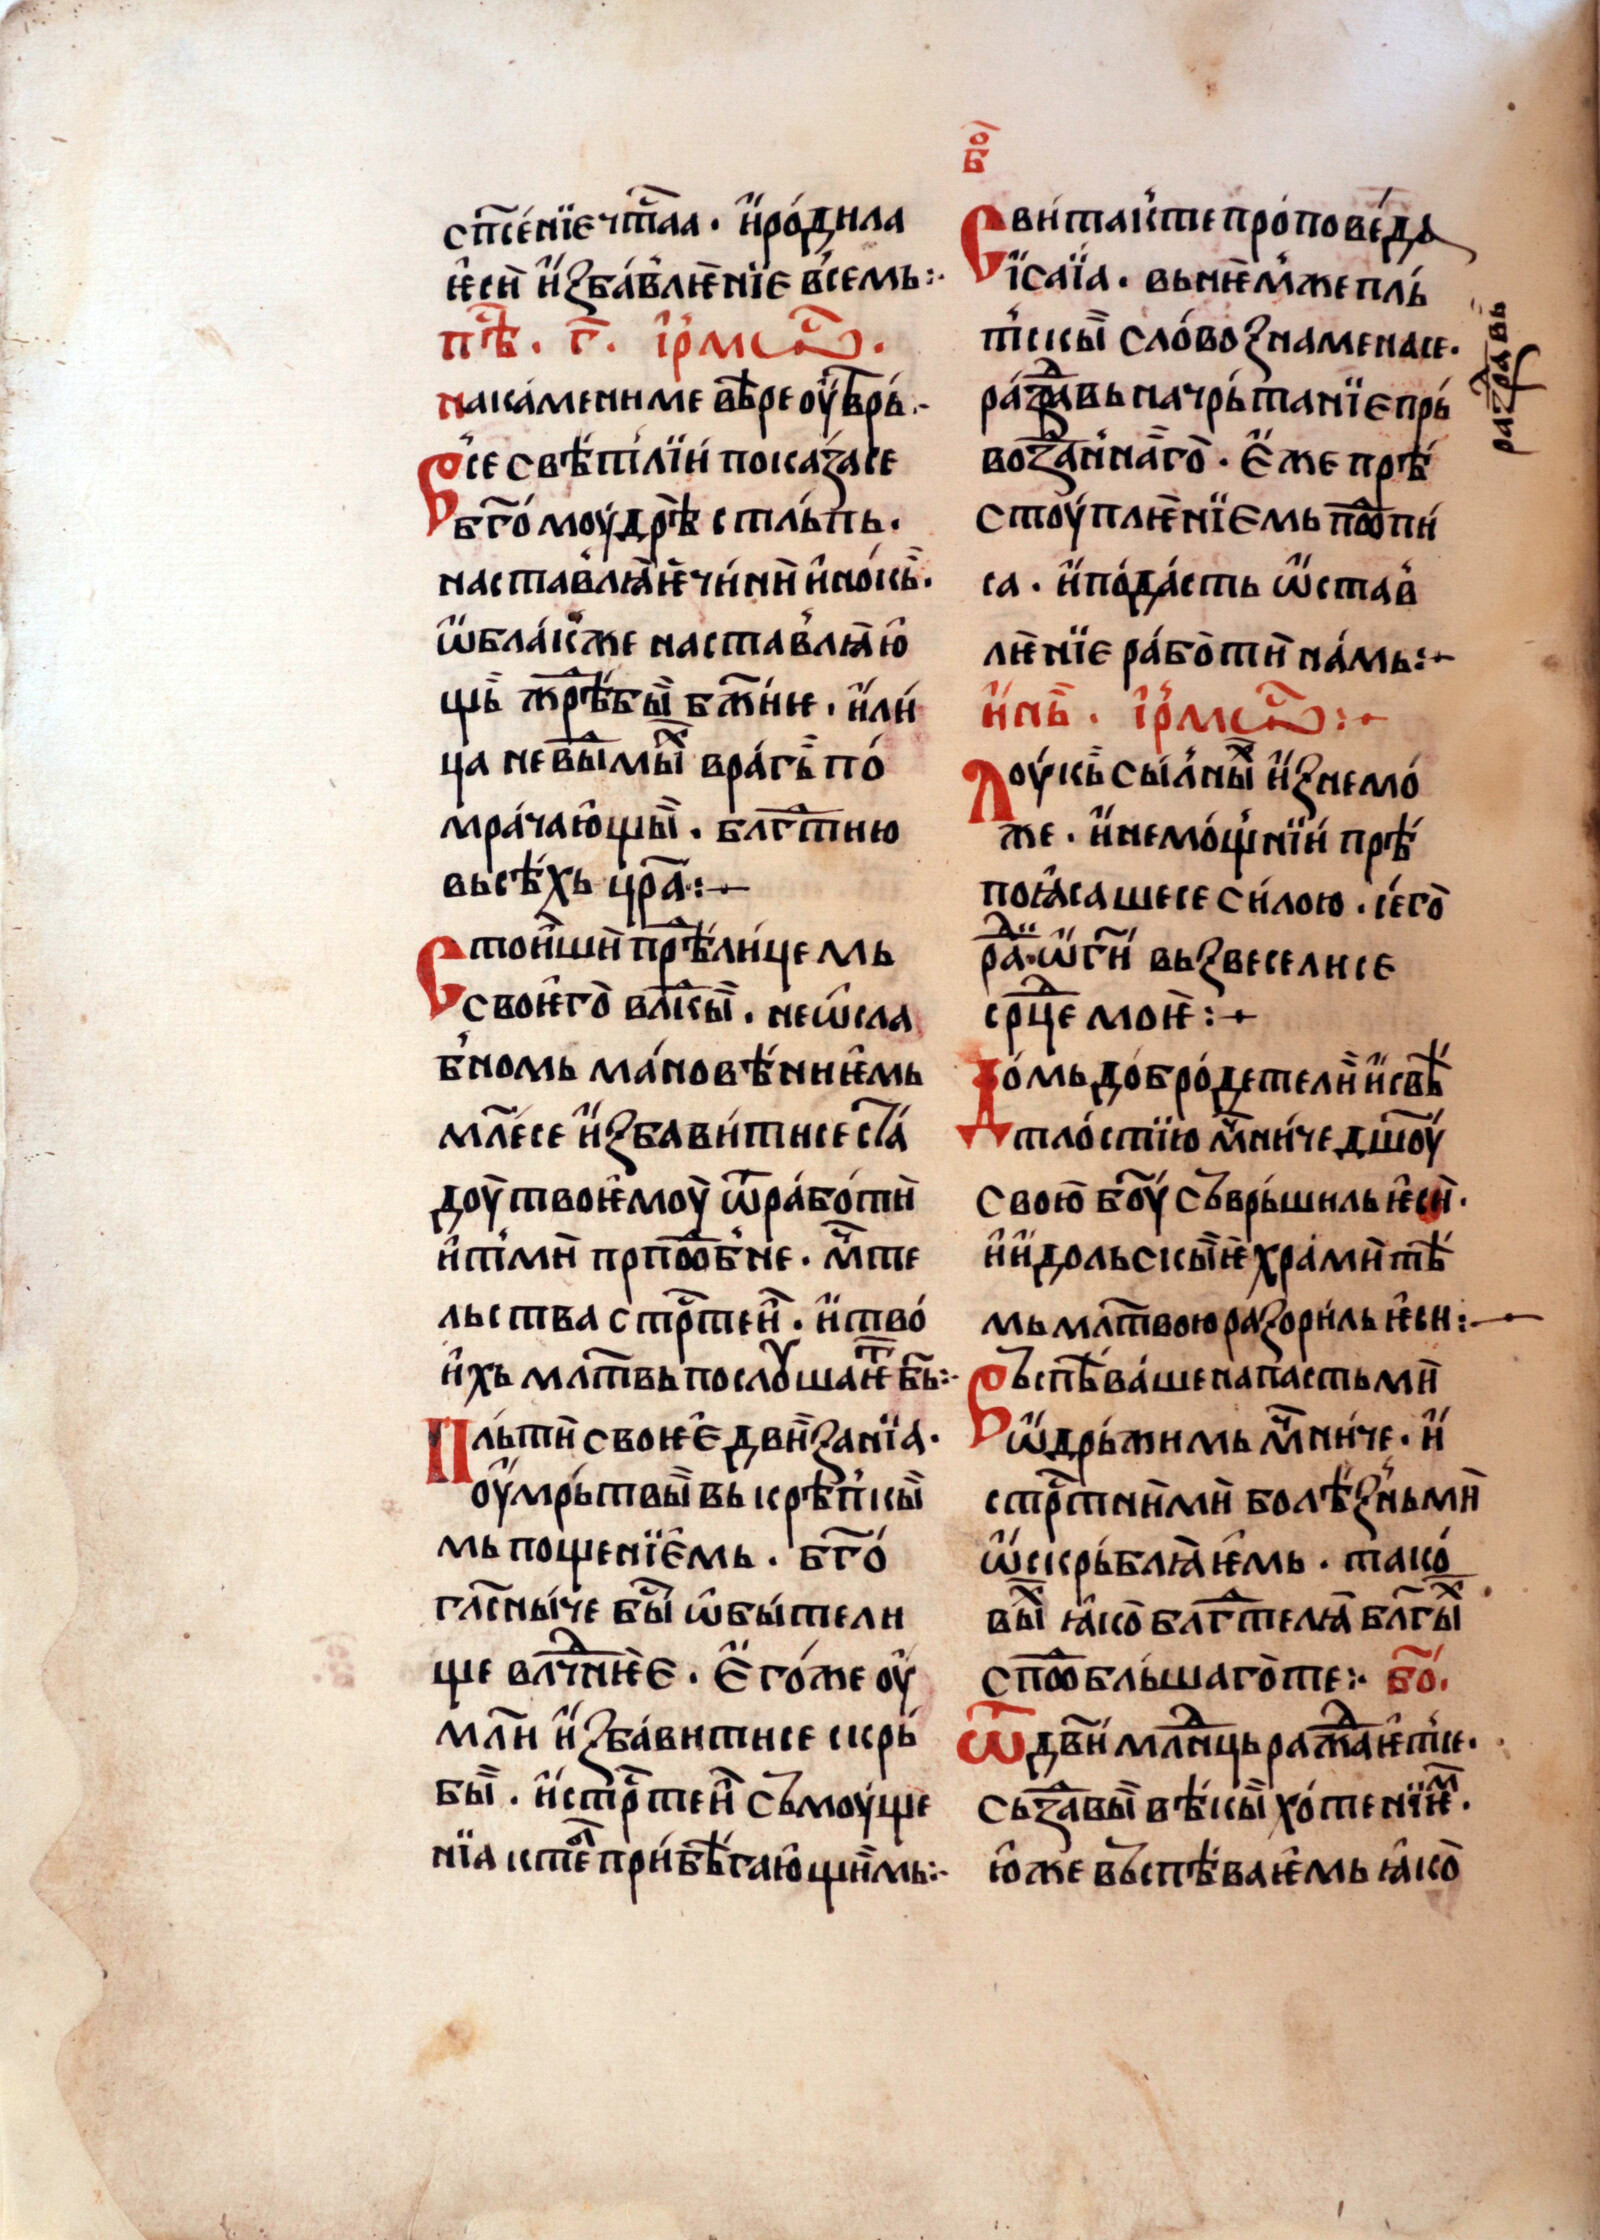 сп҃се́нїе чт҃аа · и҆ роди́ла
ѥ҆сѝ и҆збавл҄ѥ́нїе вс́емь :·
пѣ҃ · г҃ · і҆рмѡ҃ ·
на камени ме вѣре оу҆врь́ ·
Все свѣти́лїи показа́ се
бг҃о моу́дрѣ стль́пь ·
наставлꙗ́ѥ чи́нѝ и҆нокь̏ ·
ѡ҆бла́кже наставлꙗ́ю
щь̏ жрѣ҃бы̏ бж҃иѥ · и҆ ли́
ца невы҃мыⷯ вра́гь̏ по́
мрача́ю҆щы̏ · блг҃тию
вьсѣ́хь цр҃а :·
Стои҆шѝ прѣⷣ ли́цемь
своѥ҆го̀ влⷣкы̏ · не ѡ҆сла
б́номь манове́ниѥ҆мь
мл҃е́ се и҆збави́ти се ста́
доу̀ твоѥ҆моу̀ ѿ рабо́тѝ
и҆тїмѝ прпⷣоб́не · мⷱ҇те
льства стрⷭ҇теи҆ · и҆ тво́
и҆хь млт҃вь послꙋшаѥⷮ бь҃ :·
Пль́тѝ своѥѐ двѝзанїа ·
оу҆мрь́твы̏ вь крѣ́пкы̏
мь поще́нїе҆мь · бг҃о́
гл҃сны́че бы҃ ѡ҆би́тели
ще влⷣчнѥѐ · Е҆го́же оу҆
мл҃и и҆зба́вити се скрь́
бы̏ · и҆ стрⷭ҇теи҆ сьмоу́ще
нїа к тебѣ̀ прибѣга́ю҆щѝмь :·
бо҃
Ви́таи҆сте проповѣ́да
І҆са́їа · вь нѥ́мже пль́
тскы̏ сло́во знамена се ·
раⷣзравь начрь́танїе прь́
возⷣан́наго̀ · Е҆же прѣ́
стоу́плѥ́нїемь поⷣпи́
са · и҆ пода́сть ѡ҆став́
лѥ́нїе рабо́тѝ на́мь :·
раⷣзравь
и҆нь̏ · і҆рмѡ҃ :·
Лоу́кь̏ сы́лныⷯ и҆знемо́
же · и҆ немо́щнїи прѣ́
поꙗ́саше се си́лою · сего̀
раⷣи · ѡ҆ г҃и вьзвесели се
срⷣце моѥ̀ :·
До́мь добродетелѝ и҆ свѣ́
тло́стїю мⷱ҇ни́че дш҃оу́
свою̀ бо҃у сьврьши́ль ѥ҆сѝ ·
и҆ и҆дольскы̏ѥ хра́мѝ тѣ́
мь млт҃вою разори́ль ѥ҆си :·
Вьспѣва́ше напастьмѝ
ѡ҆дрь́жимь мⷱ҇ни́че · и҆
стрⷭ҇тни́мѝ болѣ́зньмѝ
ѡ҆скрь́блꙗѥ҆мь · тако́
выⷯ ꙗ҆ко̀ блгⷣтелꙗ блг҃ыⷯ
споⷣбль́шаго̀ те :· бо҃.
Ѿ дв҃и млⷣнць раⷤаѥ҆т́ се ·
сьзⷣавы̏ вѣкы̏ хо́тенїѥⷨ ·
ю҆же вьспѣваѥ҆мь ꙗ҆ко̀